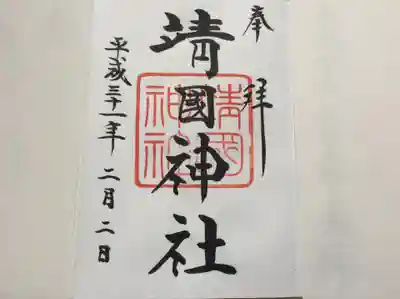 奉拝
靖國神社
靖国神社
平成三十一年二月二日